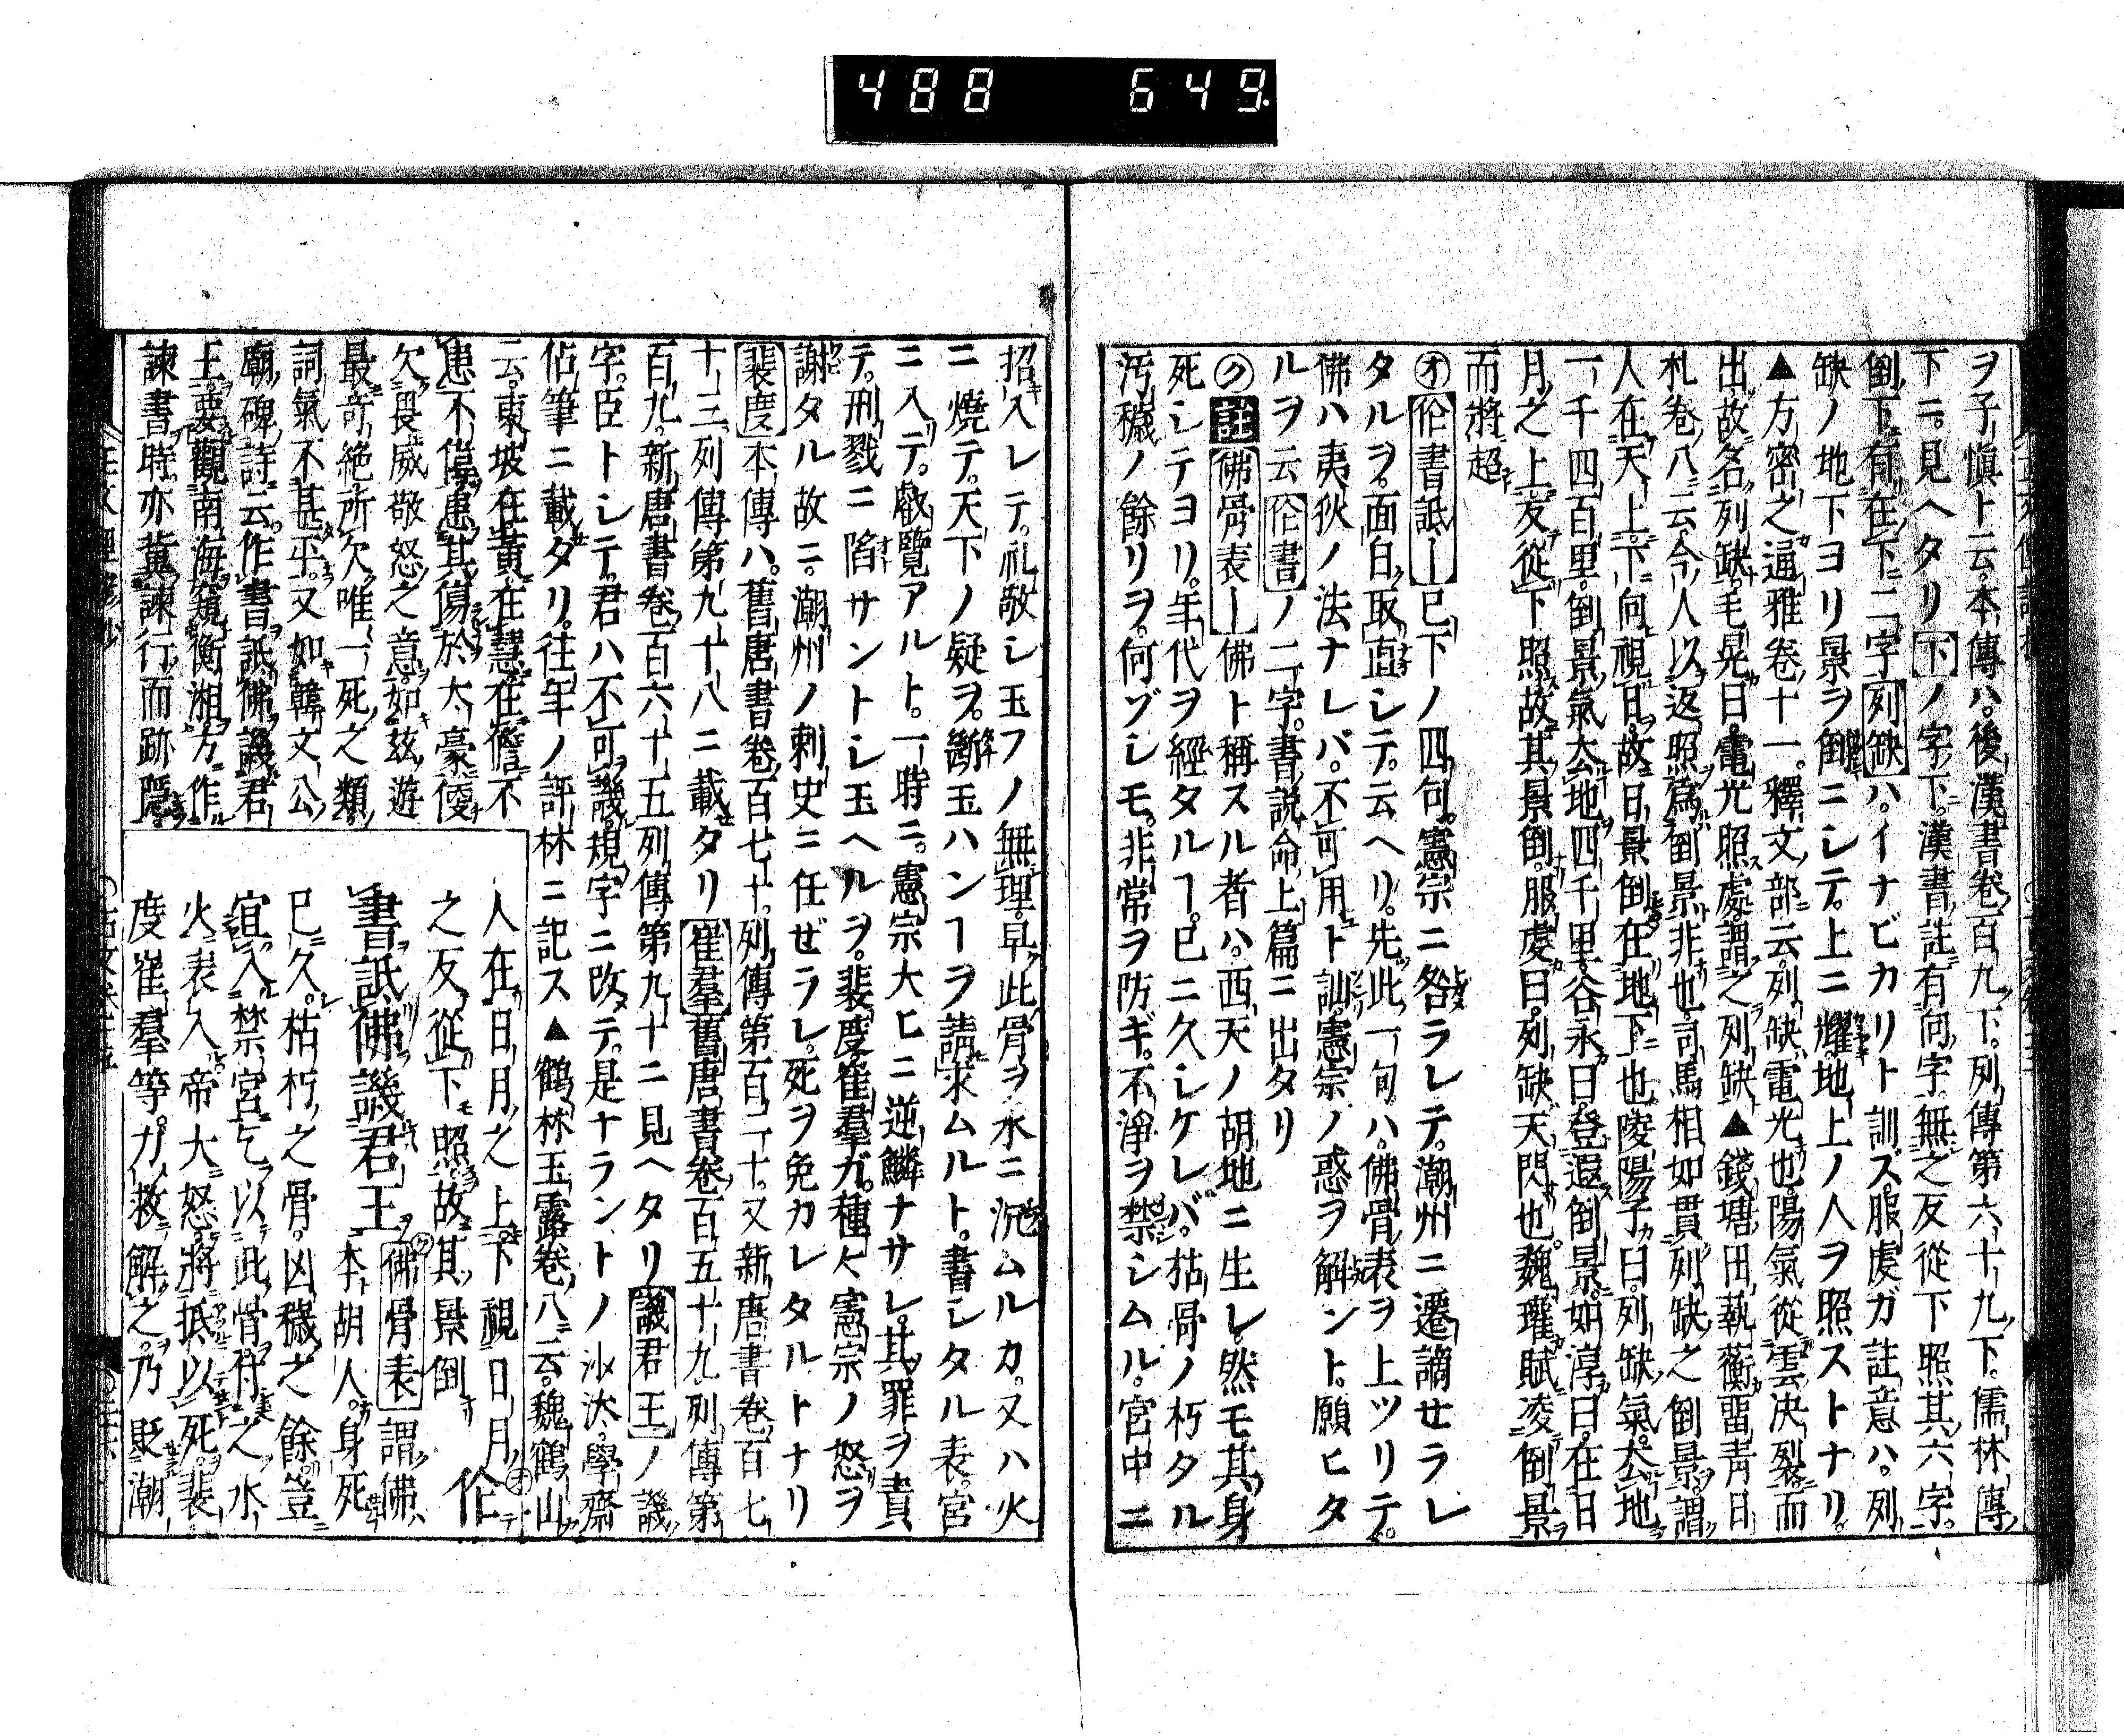 488 649
ヲ子愼ト云本傳ハ後漢書卷百九下列傳第六十九下儒林傳
下ニ見ヘタリ下ノ字下漢書註有向字無之反從下照其六字
倒下有在下二字列缺ハイナビカリト訓ズ服虔ガ註意ハ列
缺ノ地下ヨリ景ヲ倒ニシテ上ニ耀地上ノ人ヲ照ストナリ
▲方密之通雅卷十一釋文部云列缺電光也陽氣從雲決裂而
出故名列缺毛晃曰電光照處謂之列缺▲錢塘田藝蘅留青日
札卷八云今人以返照爲倒景非也司馬相如貫列缺之倒景謂
人在天上下向視日故日景倒在地下也陵陽子曰列缺氣去地
一千四百里倒景氣去地四千里谷永曰登遐倒景如淳曰在日
月之上反從下照故其景倒服虔曰列缺天閃也魏瓘賦凌倒景
而將超
㋔作書詆ー已下ノ四句憲宗ニ咎ラレテ潮州ニ遷謫セラレ
タルヲ面白取直シテ云ヘリ先此一句ハ佛骨表ヲ上ツリテ
佛ハ夷狄ノ法ナレバ不可用ト訓憲宗ノ惑ヲ解ント願ヒタ
ルヲ云作書ノ二字書説命上篇ニ出タリ
㋗註佛骨表ー佛ト稱スル者ハ西天ノ胡地ニ生レ然モ其身
死シテヨリ年代ヲ經タルヿ已ニ久シケレバ枯骨ノ朽タル
汚穢ノ餘リヲ何ゾシモ非常ヲ防ギ不淨ヲ禁シムル宮中ニ
招入レテ礼敬シ玉フノ無理早此骨ヲ水ニ沉ムルカ又ハ火
ニ燒テ天下ノ疑ヲ斷玉ハンヿヲ請求ムルト書シタル表宮
ニ入テ叡覽アルト一時ニ憲宗大ヒニ逆鱗ナサレ其罪ヲ責
テ刑戮ニ陷サントシ玉ヘルヲ裴度崔羣ガ種々憲宗ノ怒ヲ
謝タル故ニ潮州ノ刺史ニ任ゼラレ死ヲ免カレタルトナリ
裴度本傳ハ舊唐書卷百七十列傳第百二十又新唐書卷百七
十三列傳第九十八ニ載タリ崔羣舊唐書卷百五十九列傳第
百九新唐書卷百六十五列傳第九十ニ見ヘタリ譏君王ノ譏
字臣トシテ君ハ不可譏規字ニ改テ是ナラントノ沙汰學齋
佔筆ニ載タリ往年ノ評林ニ記ス▲鶴林玉露卷八云魏鶴山
云東坡在黄在惠在儋不
患不偉患其傷於太豪便
欠畏威敬怒之意如茲遊
最奇絶所欠唯一死之類
詞氣不甚平又如韓文公
廟碑詩云作書詆佛譏君
王要觀南海窺衡湘方作
諫書時亦冀諫行而跡隱
人在日月之上下視日月㋔作
之反從下照故其景倒
書詆佛譏君王㋗佛骨表謂佛
本胡人身死
已久枯朽之骨凶穢之餘豈
宜入禁宮乞以此骨付之水
火表入帝大怒將抵以死裴
度崔羣等力救解之乃貶潮